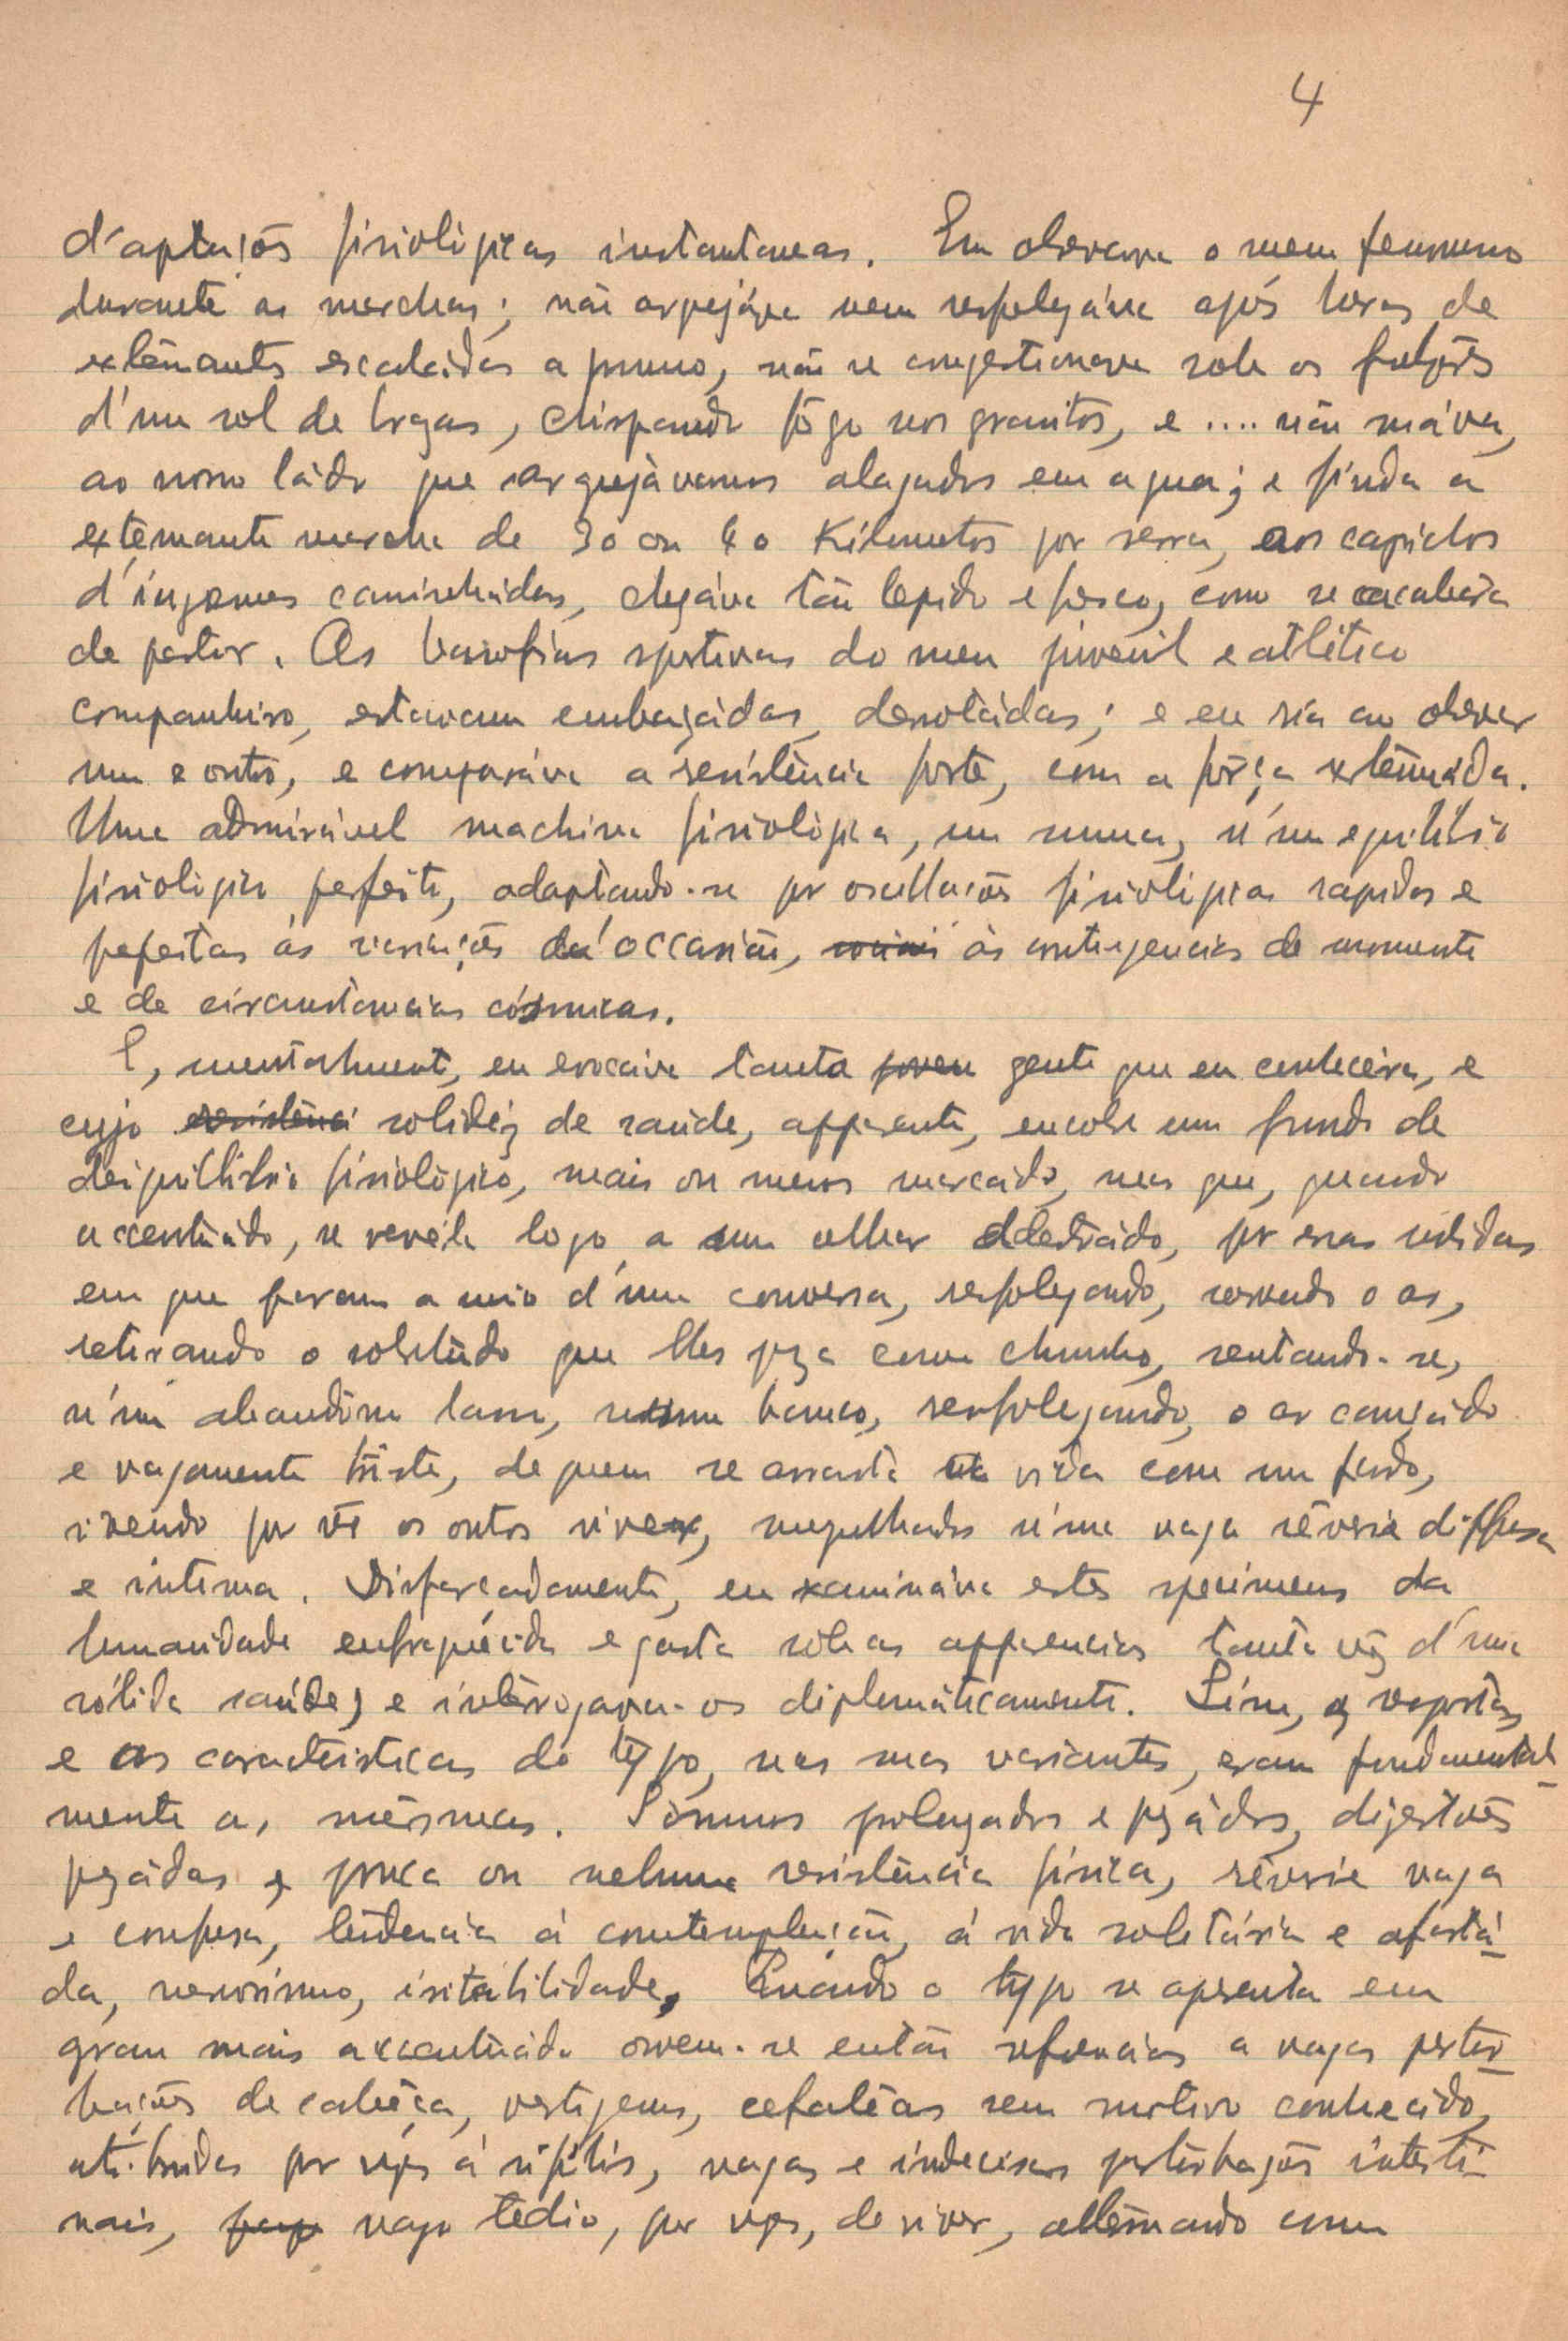 4
d'aptações fisiológicas instantaneas. Eu observava o mesmo fenomeno
durante as marchas; não arpejáva nem resfolegáva após horas de
extenuantes escaladas a prumo, não se congestionava sob os fulgores
d'um sol de bragas, chispando fôgo nos granitos, e .... não suáva,
ao nosso ládo que arquejàvamos alagados em agua; e finda a
extenuante marcha de 30 ou 40 Kilometros por serra, aos caprichos
d'ingremes caminhádas, chegáva tão lepido e fresco, como se acabára
de partir. As basofias sportivas do meu juvenil e atlético
companheiro, estavam embaçádas, derrotádas; e eu ria ao observar
um e outro, e comparáva a resistência forte, com a fôrça extenuáda.
Uma admirável machina fisiológica, em suma, n'um equilibrio
fisiologico perfeito, adaptando-se por oscillações fisiológicas rapidas e
pefeitas ás variações da occasião, ás contingencias de momento
e de circunstancias cósmicas.
E, mentalmente, eu evocáva tanta gente que eu conhecêra, e
cujo solidéz de saúde, apparente, encobre um fundo de
desiquilibrio fisiológico, mais ou menos marcádo, mas que, quando
accentuádo, se revéla logo a um olhar distraído, por essas subidas
em que param a meio d'uma conversa, resfolegando, sorvendo o ar,
retirando o sobretudo que lhes peza como chumbo, sentando-se,
n'um abandôno lasso, n'um banco, resfolegando, o ar cançádo
e vagamente triste, de quem se arrasta na vida com um fardo,
vivendo por vêr os outros viver, mergulhados n'uma vaga rêverie diffusa
e intima. Disfarçadamente, eu examináva estes specimens da
humanidade enfraquecida e gasta sob as apparencias tanta vêz d'uma
sólida saúde, e interrogava-os diplomáticamente. Sim, as respostas
e as caracteristicas do typo, nas suas variantes, eram fundamental-
mente as mêsmas. Sonnos prolongados e pezádos, digestões
pezádas e pouca ou nehuma resistência fisica, rêverie vaga
e confusa, tendencia á comtemplação, á vida solitária e afastá-
da, nervosismo, irritabilidade. Quando o typo se apresenta em
grau mais accentuádo ouvem-se então referencias a vagas pertur-
bações de cabêça, vertigens, cefaléas sem motivo conhecido,
atribuidas por vezes á sifilis, vagas e indecisas perturbações intesti-
nais, vago tédio, por vezes, de viver, alternando com